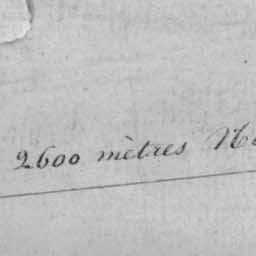 2600 mètres